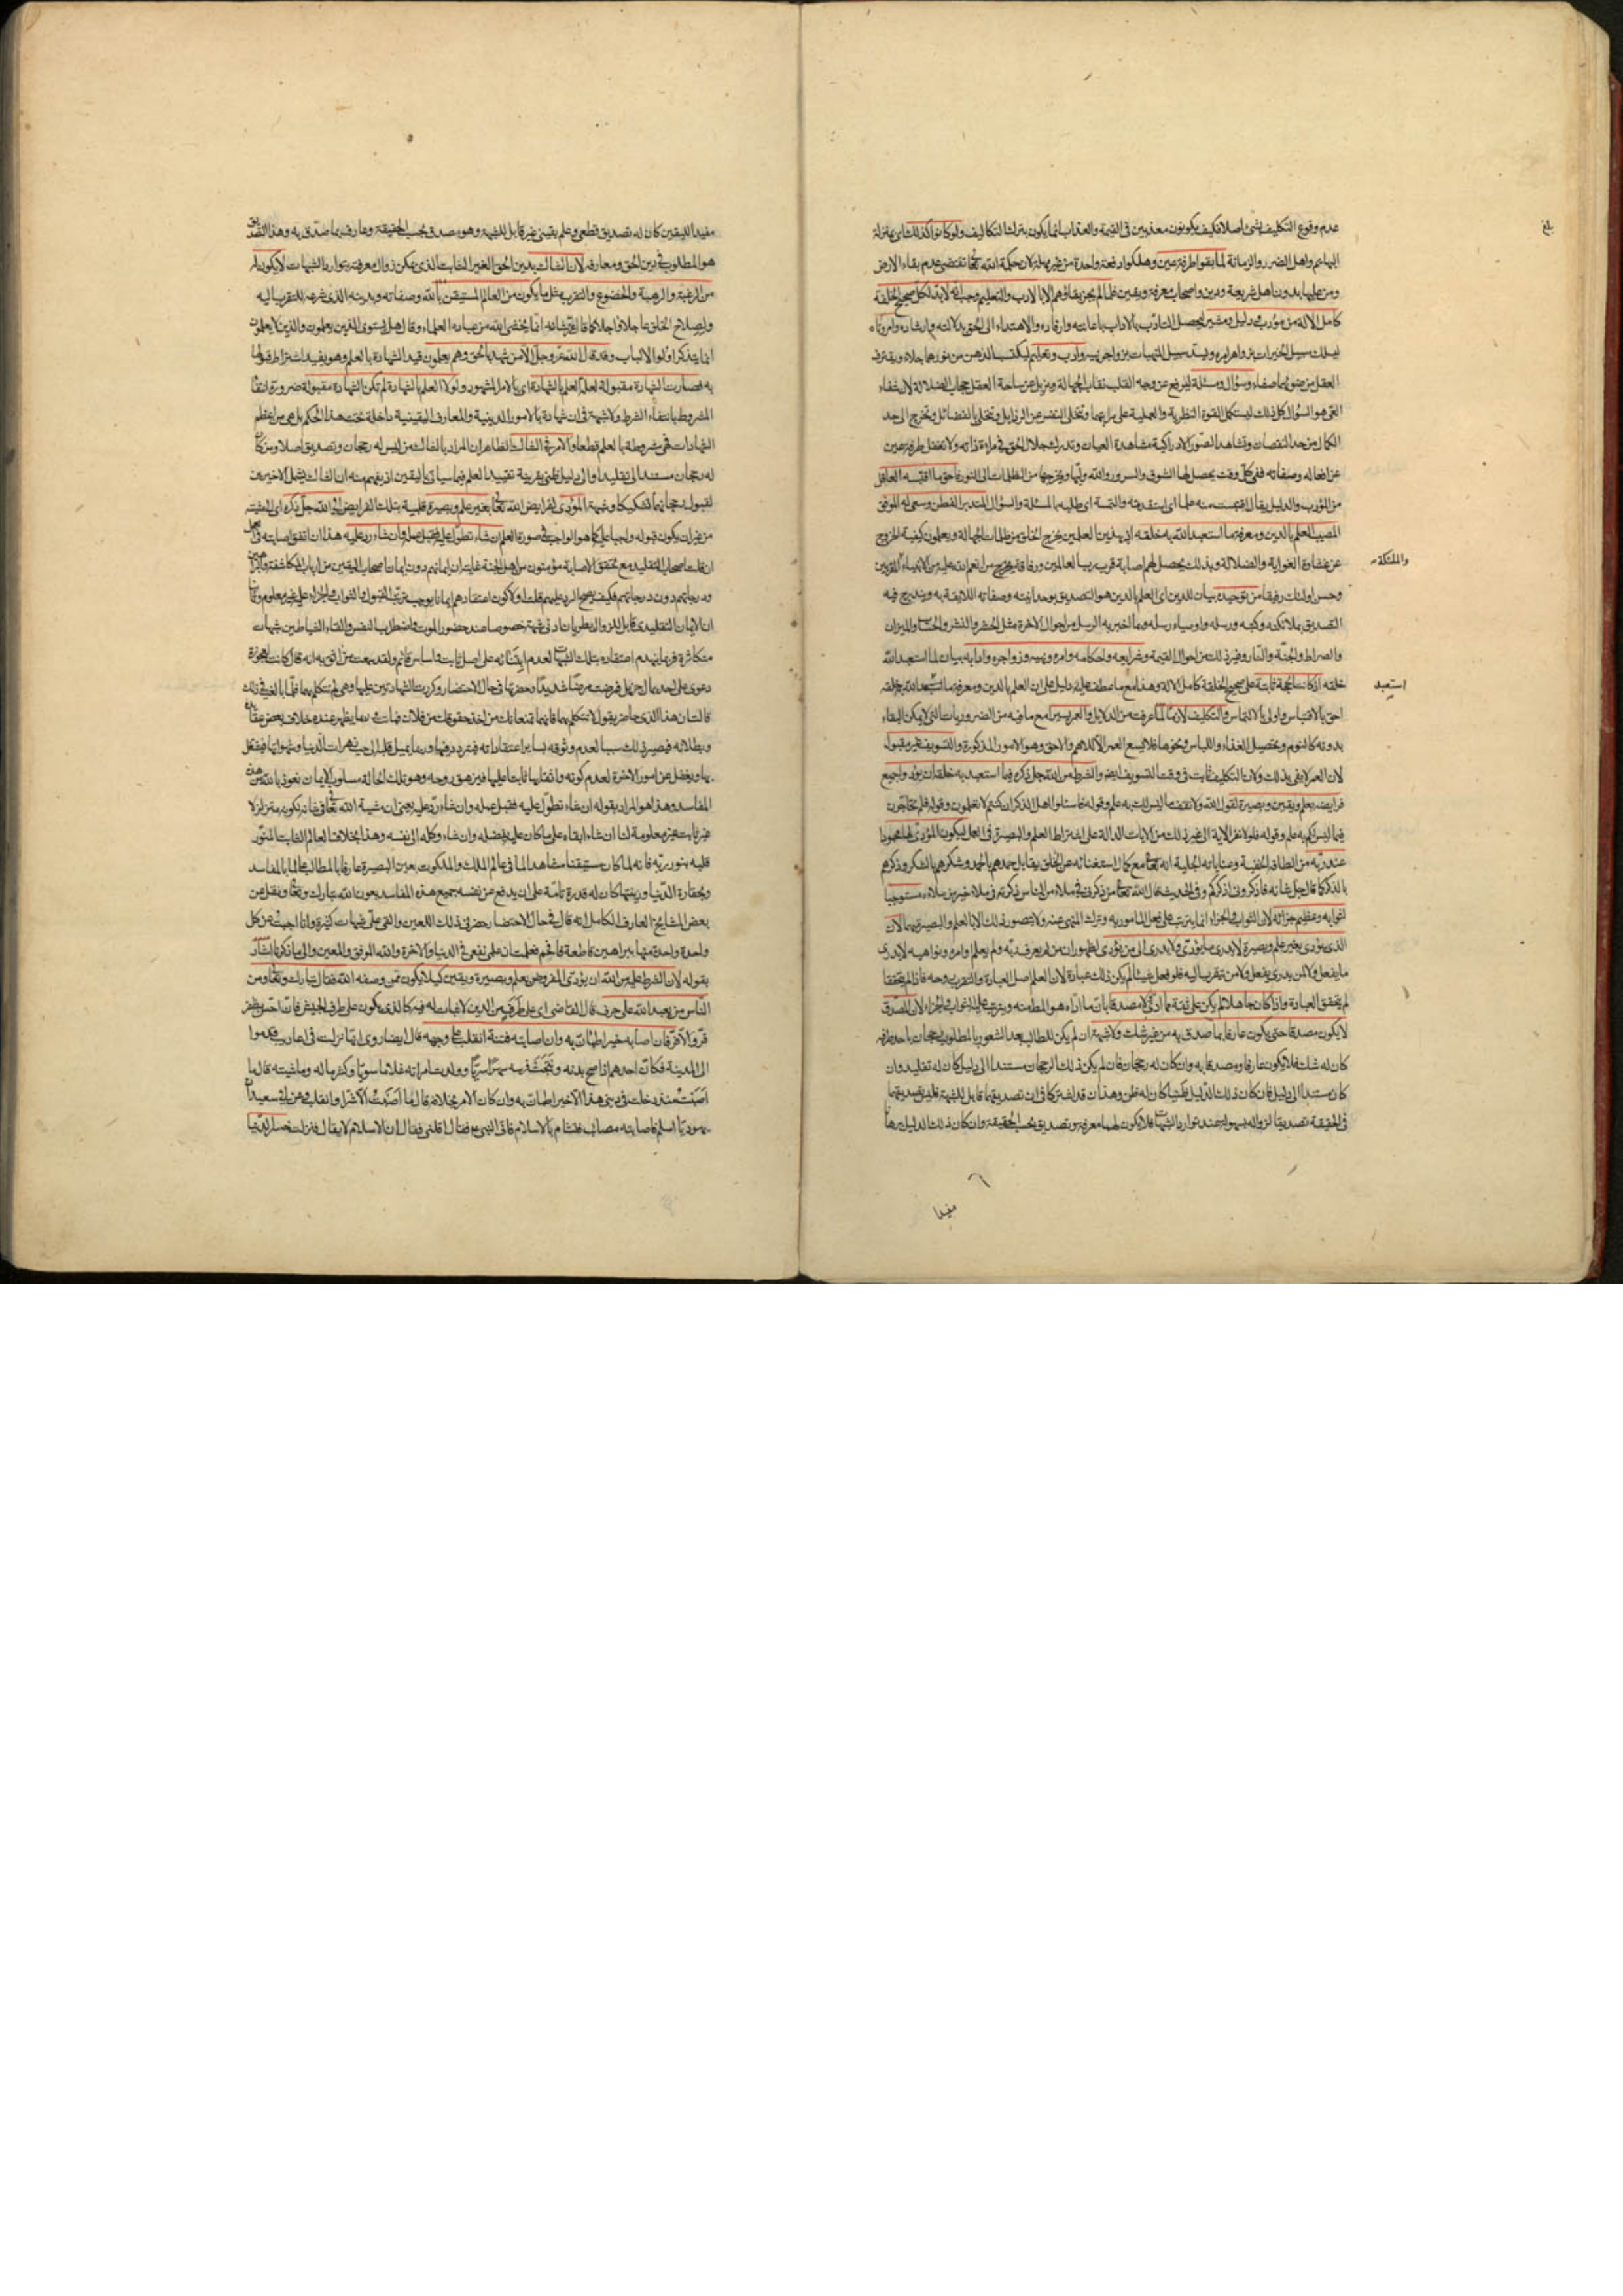 عدم وقوع التكليف بشئ اصلا فكيف يكونون معذبين في القيمة والعذاب انما يكون بترك التكاليف ولو كانوا كذلك اي بمنزلة
البهايم واهل الضرر والزمانة لما بقوا طرفة عين وهلكوا دفعة واحدة من غير مهلة لان حكمة الله تعالى تقتضي عدم بقاء الارض
ومن عليها بدون اهل شريعة ودين واصحاب معرفة ويقين فلما لم يجز بقاؤهم الا بالادب والتعليم وجب انه لا بد لكل صحيح الخلقة
كامل الالة من مؤدب ودليل ومشير ليحصل التادب بالاداب باعانته وارفاده والاهتداء الى الحق بدلالته وارشاده وامر ونهي
ليسلك سبيل الخيرات بزواهر امره ويسد سبيل المنهيات بزواجر نهيه وادب وتعليم ليكتسب الذهن من نورهما جلاء ويغترف
العقل من ضوئهما صفاء وسؤال ومسئلة ليرفع عن وجه القلب نقاب الجهالة ويزيل عن ساحة العقل حجاب الضلالة لان شفاء
العي هو السؤال كل ذلك ليستكمل القوة النظرية والعملية على مراتبهما وتتخلى النفس عن الرذايل وتتحلى بالفضائل وتخرج الى حد
الكمال من حد النقصان وتشاهد الصور الادراكية مشاهدة العيان وتدرك جلال الحق في مراة ذاته ولا تغفل طرفة عين
عن افعاله وصفاته ففي كل وقت يحصل لها الشوق والسرور والله وليها ويخرجها من الظلمات الى النور فاحق ما اقتبسه العاقل
من المؤدب والدليل يقال اقتبست منه علما اي استفدته والتمسه اي طلبه بالمسئلة والسؤال المتدبر الفطن وسعى له الموفق
المصيب العلم بالدين ومعرفة ما استعبد الله به خلقه اذ بهذين العلمين يخرج الخلق من ظلمات الجهالة ويعلمون كيفية الخروج
عن غشاوة الغواية والضلالة وبذلك يحصل لهم اصابة قرب رب العالمين ورفاقة من انعم الله عليه من الانبياء المقربين
والملئكة
وحسن اولئك رفيقا من توحيده بيان للدين اي العلم بالدين هو التصديق بوحدانيته وصفاته اللايقة به ويندرج فيه
التصديق بملائكته وكتبه ورسله واوصياء رسله وبما اخبر به الرسل من احوال الاخرة مثل الحشر والنشر والحساب والميزان
والصراط والجنة والنار وغير ذلك من احوال القيمة وشرايعه واحكامه وامره ونهيه وزواجره وادابه بيان لما استعبد الله
خلقه اذ كانت الحجة ثابتة على صحيح الخلقة كامل الالة وهذا مع ما عطف عليه دليل على ان العلم بالدين ومعرفة ما استعبد الله به خلقه
استعبد
احق بالاقتباس واولى بالالتماس والتكليف لازما لما عرفت من الدلايل والعمر يسيرا مع ما فيه من الضروريات التي لا يمكن البقاء
بدونه كالنوم وتحصيل الغذاء واللباس ونحوها فلا يسع العمر الا للاهم والاحق وهو الامور المذكورة والتسويف غير مقبول
لان العمر لا يفي بذلك ولان التكليف ثابت في وقت التسويف ايضا والشرط من الله جل ذكره فيما استعبد به خلقه ان يؤدوا جميع
فرايضه بعلم ويقين وبصيرة لقول الله ولا تقف ما ليس لك به علم وقوله فاسئلوا اهل الذكر ان كنتم لا تعلمون وقوله فلم تحاجون
فيما ليس لكم به علم وقوله فلولا نفر الاية الى غير ذلك من الايات الدالة على اشتراط العلم والبصيرة في العمل ليكون المؤدي لها محمودا
عند ربه من الطافه الخفية وعناياته الجلية انه تعالى مع كمال استغنائه عن الخلق يقابل حمدهم بالحمد وشكرهم بالشكر وذكرهم
بالذكر كما قال جل شانه فاذكروني اذكركم وفي الحديث قال الله تعالى من ذكرني في ملاء من الناس ذكرته في ملاء خير من ملاءه مستوجبا
لثوابه وعظيم جزائه لان الثواب والجزاء انما يترتب على فعل المامور به وترك المنهي عنه ولا يتصور ذلك الا بالعلم والبصيرة بهما لان
الذي يؤدي بغير علم وبصيرة لا يدري ما يؤدي ولا يدري الى من يؤدي لظهور ان من لم يعرف ربه ولم يعلم اوامره ونواهيه لا يدري
ما يفعل ولا لمن يفعل ولا من يتقرب اليه فلو فعل شيئا لم يكن ذلك عبادة لان العلم اصل العبادة والتقرب روحه فاذا لم يتحققا
لم يتحقق العبادة واذا كان جاهلا لم يكن على ثقة مما ادى ولا مصدقا بان ما اداه هو المط منه ويترتب عليه الثواب والجزاء لان المصدق
لا يكون مصدقا حتى يكون عارفا بما صدق به من غير شك ولا شبهة ان لم يكن للطالب بعد الشعور بالمطلوب رجحان باحد طرفيه
كان له شك فلا يكون عارفا ومصدقا به وان كان له رجحان فان لم يكن ذلك الرجحان مستندا الى دليل كان له تقليد وان
كان مستندا الى دليل فان كان ذلك الدليل ظنيا كان له ظن وهذان قد اشتركا في ان تصديقهما قابل للشبهة فليس تصديقهما
في الحقيقة تصديقا لزواله بسهولة عند توارد الشبهات فلا يكون لهما معرفة وتصديق بحسب الحقيقة وان كان ذلك الدليل برهانا
مفيدا
مفيدا لليقين كان له تصديق قطعي وعلم يقيني غير قابل للشبهة وهو مصدق بحسب الحقيقة وعارف بما صدق به وهذا التصديق
هو المطلوب في دين الحق ومعارفه لان الشاك بدين الحق الغير الثابت الذي يمكن زوال معرفته بتوارد الشبهات لا يكون له
من الرغبة والرهبة والخضوع والتقرب مثل ما يكون من العالم المستيقن بالله وصفاته وبدينه الذي شرعه للتقرب اليه
ولصلاح الخلق عاجلا واجلا كما قال عز شانه انما يخشى الله من عباده العلماء وقال هل يستوي الذين يعلمون والذين لا يعلمون
انما يتذكر اولوا الالباب وقد قال الله عز وجل الا من شهد بالحق وهم يعلمون قيد الشهادة بالعلم وهو يفيد اشتراط قبولها
به فصارت الشهادة مقبولة لعلة العلم بالشهادة اي بالامر المشهود ولولا العلم بالشهادة لم تكن الشهادة مقبولة ضرورة انتفاء
المشروط بانتفاء الشرط ولا شبهة في ان شهادة بالامور الدينية والمعارف اليقينية داخلة تحت هذا الحكم بل هي من اعظم
الشهادات فهي مشروطة بالعلم قطعا والامر في الشاك الظاهر ان المراد بالشاك من ليس له رجحان وتصديق اصلا ومن كان
له رجحان مستندا الى تقليد او الى دليل ظني بقرينة تقييد العلم فيما سياتي باليقين اذ يفهم منه ان الشاك يشمل الاخيرين
المؤدي لفرايض الله تعالى بغير علم وبصيرة قلبية بتلك الفرايض الى الله جل ذكره اي المشية
من غير ان يكون قبوله واجبا عليه كما هو الواجب في صورة العلم ان شاء تطول عليه فقبل عمله وان شاء رد عليه هذا ان اتفق اصابته
ان قلت اصحاب التقليد مع تحقق الاصابة مؤمنون من اهل الجنة غاية ان ايمانهم دون ايمان اصحاب اليقين من ارباب المكاشفة
ودرجاتهم دون درجاتهم فكيف يصح الرد عليهم قلت اولا كون اعتقادهم ايمانا يوجب ترتب القبول والثواب والجزاء عليه غير معلوم وثانيا
ان الايمان التقليدي قابل للزوال بطريان ادنى شبهة خصوصا عند حضور الموت واضطراب النفس والقاء الشياطين شبهات
متكاثرة فربما ينهدم اعتقاده بتلك الشبهات لعدم ابتنائه على اصل ثابت واساس قائم ولقد سمعت من اثق به انه قال كانت لعجوزة
دعوى على احد بمال جزيل فمرضت مرضا شديدا وحضرتها في حال الاحتضار وكررت الشهادتين عليها وهي لم تتكلم بهما فلما بالغت في ذلك
قالت ان هذا الذي حاضر يقول لا تتكلم بهما فانهما تمنعانك من اخذ حقوقك من فلان فماتت وربما يظهر عنده خلاف بعض عقايده
وبطلانه فيصير ذلك سببا لعدم وثوقه بساير اعتقاداته فيتردد فيها وربما يميل قلبه الى حب زهرات الدنيا وشهواتها فيشتغل
بها ويغفل عن امور الاخرة لعدم كونه واثقا بها ثابتا عليها فيزهق روحه وهو بتلك الحالة مسلوب الايمان نعوذ بالله من هذه
المفاسد وهذا هو المراد بقوله ان شاء تطول عليه فقبل عمله وان شاء رد عليه يعني ان مشية الله تعالى في شانه يكون متزلزلا
غير ثابت غير معلومة لنا ان شاء ابقاه على ما كان عليه بفضله وان شاء وكله الى نفسه وهذا بخلاف العالم الثابت المنور
قلبه بنور ربه فانه لما كان مستيقنا مشاهدا لما في عالم الملك والملكوت بعين البصيرة عارفا بالمطالب عالما بالمفاسد
وبحقارة الدنيا وزينتها كان له قدرة تامة على ان يدفع عن نفسه جميع هذه المفاسد بعون الله تبارك وتعالى ونقل عن
بعض المشايخ العارف الكامل انه قال في حال الاحتضار حضرني ذلك اللعين والقى علي شبهات كثيرة وانا اجبت عن كل
واحدة واحدة منها ببراهين قاطعة فافحم فعلمت ان علمي نفعني في الدنيا والاخرة والله الموفق والمعين والى ما ذكرنا اشار
بقوله لان الشرط عليه من الله ان يؤدي المفروض بعلم وبصيرة ويقين كيلا يكون ممن وصفه الله فقال تبارك وتعالى ومن
الناس من يعبد الله على حرف قال القاضي اي على طرف من الدين لا ثبات له فيه كالذي يكون على طرف الجيش فان احس بظفر
قر والا فر فان اصابه خير اطمان به وان اصابته فتنة انقلب على وجهه قال ايضا روي انها نزلت في اعاريب قدموا
الى المدينة فكان احدهم اذا صح بدنه ونتجت فرسه مهرا سريا وولدت امراته غلاما سويا وكثر ماله وماشيته قال ما
اصبت منذ دخلت في ديني هذا الا خيرا واطمان به وان كان الامر بخلافه قال ما اصبت الا شرا وانقلب وعن ابي سعيد ان
يهوديا اسلم فاصابته مصائب فتشام بالاسلام فاتى النبي ص فقال اقلني فقال ان الاسلام لا يقال فنزلت خسر الدنيا